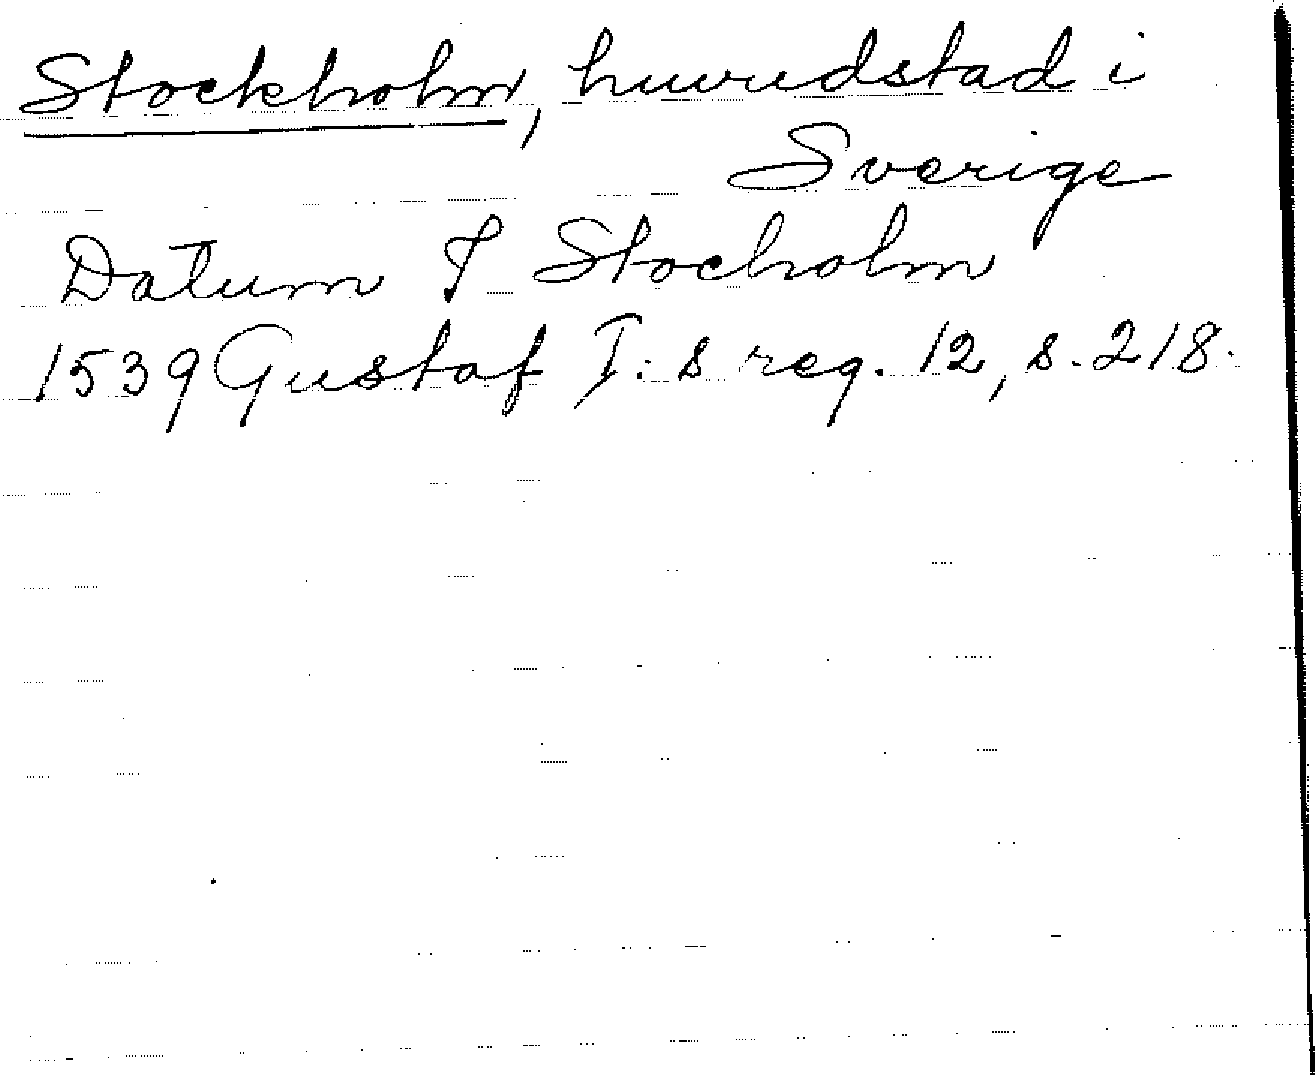 Stockholm, huvudstad i
Sverige
Datum I Stocholm
1539 Gustaf I:s reg. 12, s. 218.